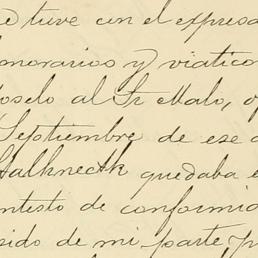 e tuve con el expresa
onorarios y viatico
oselo al Sr Malo, o
Septiembre de ese a
Halkneck quedaba e
ntesto de conformid
sido de mi parte, p